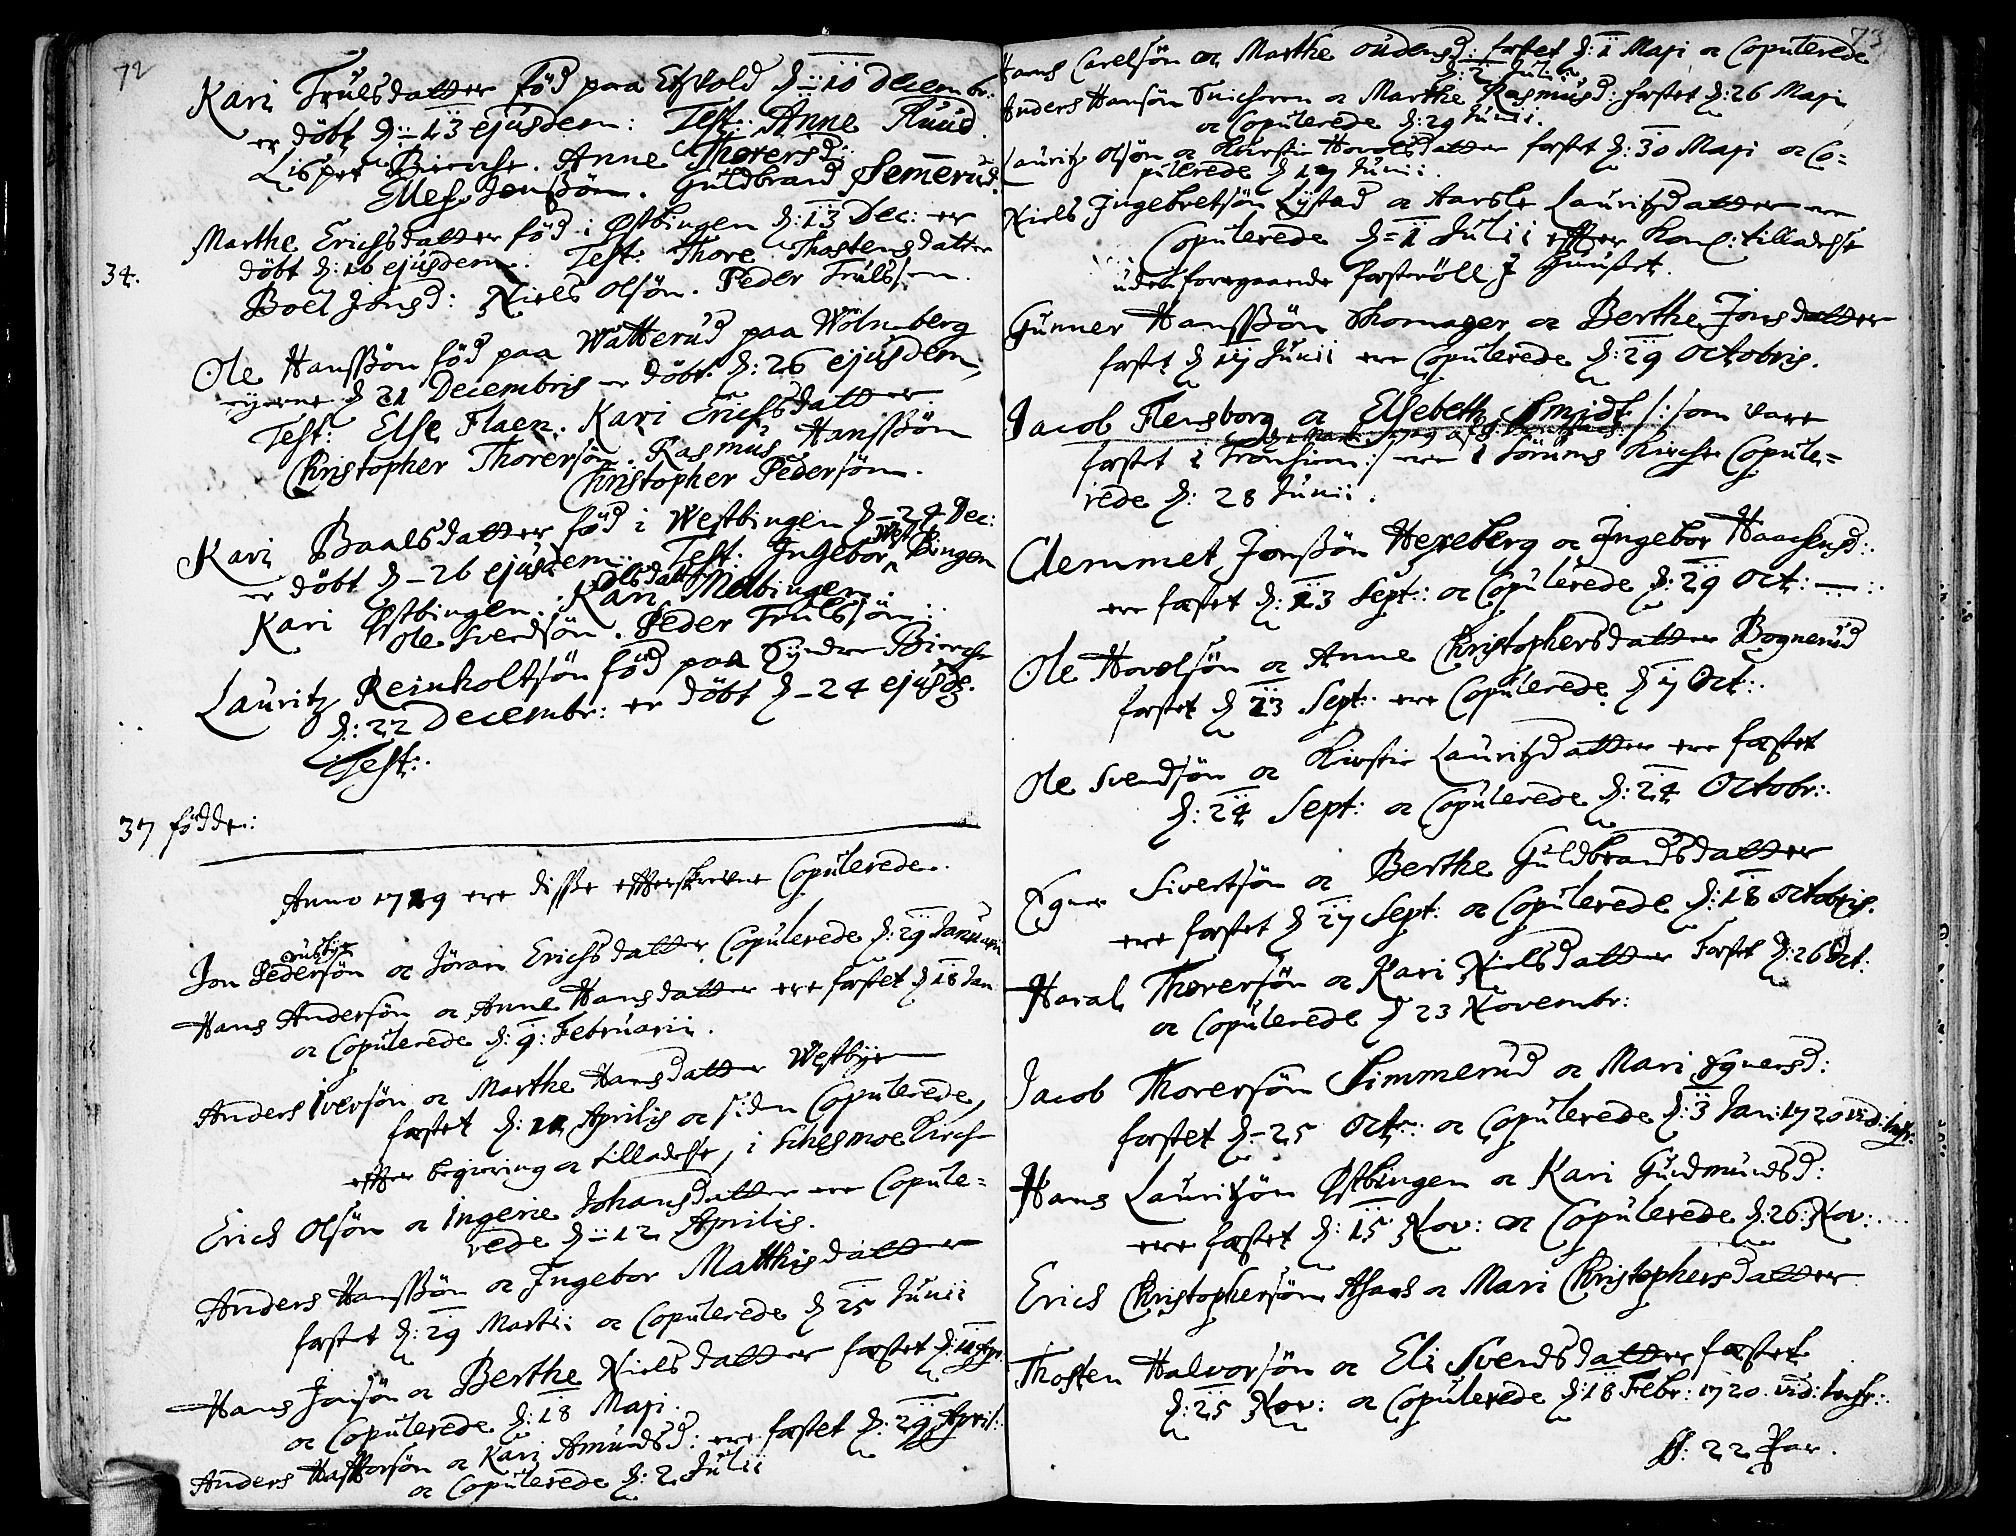 72
Kari Trulsdatter föd paa Eszvold d: 10 Decembr:
er döbt d: 13 ejusdem: Test: Anne Ruud.
Lispet Bierche. Anne Thorersd:
Ellef Jonssön. Guldbrand Semerud.
Marthe Erichsdatter föd i Østbingen d: 13 Dec: er
34.
döbt d: 16 ejusdem: Test: Thore Thostensdatter
Boel Jonsd: Niels Olsön. Peder Trulssen.
Ole Hanssön föd paa Watterud paa Wölneberg
eyerne d 21 Decembris er döbt d: 26 ejusdem,
Test: Else Flaen. Kari Erichsdatter.
Christopher Thorersön. Rasmus Hanssön
Christopher Pedersön.
Kari Baalsdatter föd i Westbingen d - 24 Dec:
er döbt d - 26 ejusdem: Test: Ingebor West Bingen
Kari Østbingen. Kari Olsdatt Melbingen.
Ole Svendsön. Peder Trulssön:
Lauritz Reinholtsön föd paa Syndre Bierche
d: 22 Decembr: er döbt d - 24 ejusd.
Test:
37 födde:
Anno 1719 ere disse effterskrevne Copulerede.
Jon Pedersön oc Jöran Erichsdatter Copulerede d: 29 Januarii
Hans Andersön oc Anne Hansdatter ere festet d 18 Jan
oc Copulerede d: 9: Februarii.
Anders Iversön oc Marthe Hansdatter Westbye
festet d: 11 Aprilis oc siden Copulerede,
effter begiering oc tilladelse, i Schesmoe Kirche
Erich Olsön oc Ingerie Johansdatter ere Copule=
rede d: 12 Aprilis.
Anders Hanssön oc Ingebor Matthisdatter
festet d: 29 Martii oc Copulerede d 25 Junii
Hans Jonsön oc Berthe Nielsdatter festet d: 11 Apr
oc Copulerede d: 18 Maji.
Anders Haffforsön oc Kari Amundsd: ere festet d: 29 April:
oc Copulerede d: 2 Julii
73
Hans Carelsön oc Marthe Oudensd: festet d: 1 Maji oc Copulerede
d: 2 Julii
Anders Hansön Snicheren oc Marthe Rasmusd: festet d: 26 Maji
oc Copulerede d: 29 Junii.
Lauritz Olsön oc Kirstie Hovelsdatter festet d: 30 Maji oc Co=
pulerede d 17 Junii.
Niels Ingebretsön Lystad oc Aasle Lauritzdatter ere
Copulerede d = 1 Julii effter Kongl: tilladelse
uden foregaaende festeröll I Huuset.
Gunner Hanssön Thomager oc Berthe Jonsdatter
festet d 17 Junii ere Copulerede d: 29 Octobris.
Jacob Flensborg oc Elsebeth Smidt /: som vare
festet i Tronhiem :/ ere i Sörums Kirche Copule=
rede d: 28 Junii.
Clemmet Jonssön Hexeberg oc Ingebor Haachensd:
ere festet d: 13 Sept: oc Copulerede d: 29 Oct:
Ole Hovelsön oc Anne Christophersdatter Bognerud
festet d 13 Sept: ere Copulerede d 17 Oct:
Ole Svendsön oc Kirstie Lauritzdatter ere festet
d: 24 Sept: oc Copulerede d: 24 Octobr:
Egner Sivertsön oc Berthe Guldbrandsdatter
ere festet d 27 Sept: oc Copulerede d: 18 Octobris.
Haral Thorersön oc Kari Nielsdatter festet d: 26 Oct:
oc Copulerede d 23 Novembr:
Jacob Thorersön Simmerud oc Mari Egnersd:
festet d - 25 Oct: oc Copulerede d: 3 Jan: 1720 vid: Infr:
Hans Lauritzön Østbingen oc Kari Gudmundsd:
ere festet d: 15 Nov: oc Copulerede d: 26 Nov:
Erich Christophersön Ahach oc Mari Christophersdatter
Thosten Halvorsön oc Eli Svendsdatter festet
d: 25 Nov: oc Copulerede d: 18 Febr: 1720. vid: Infr:
ß: 22 Par.